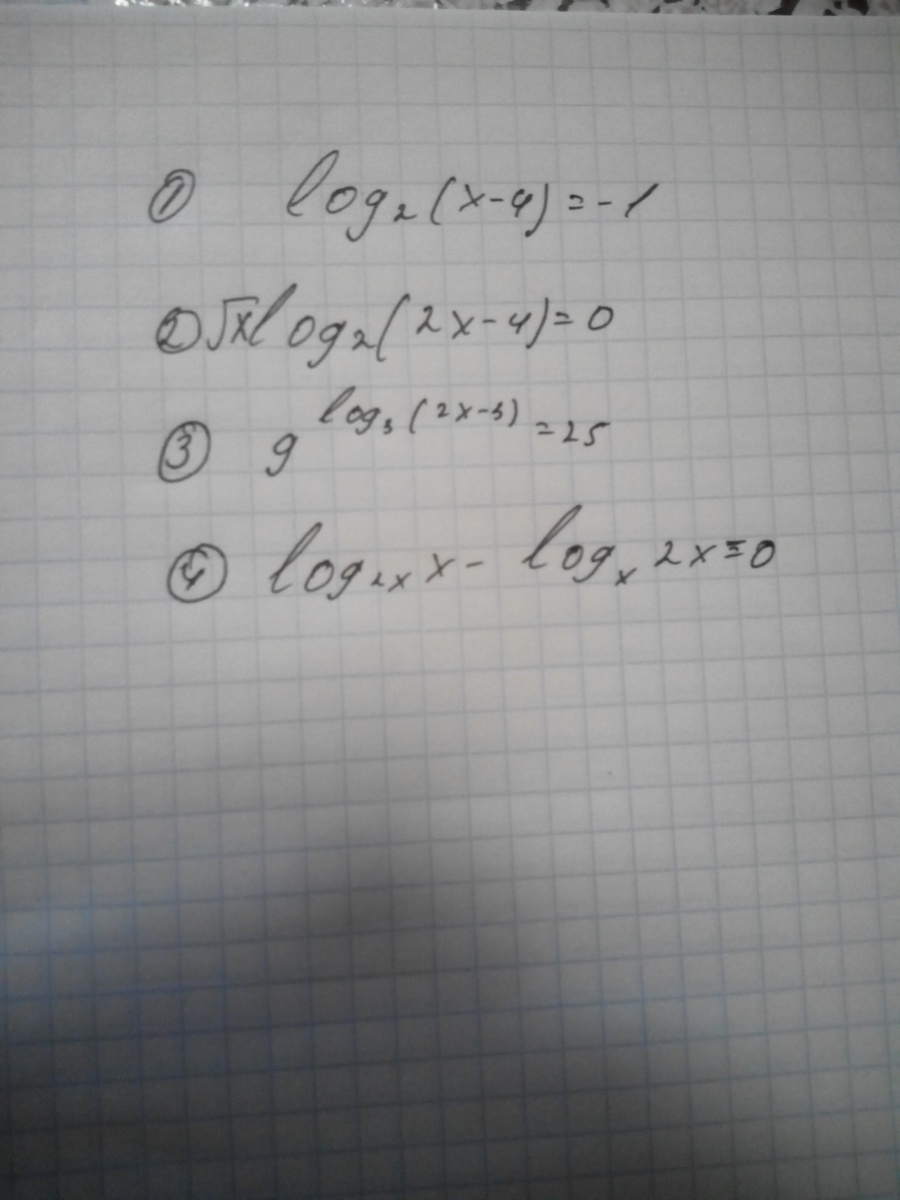 ① log₂(x-4)=-1
② √x log₂(2x-4)=0
③ 9^log₃(2x-3)=25
④ log₂ₓ x - logₓ 2x=0